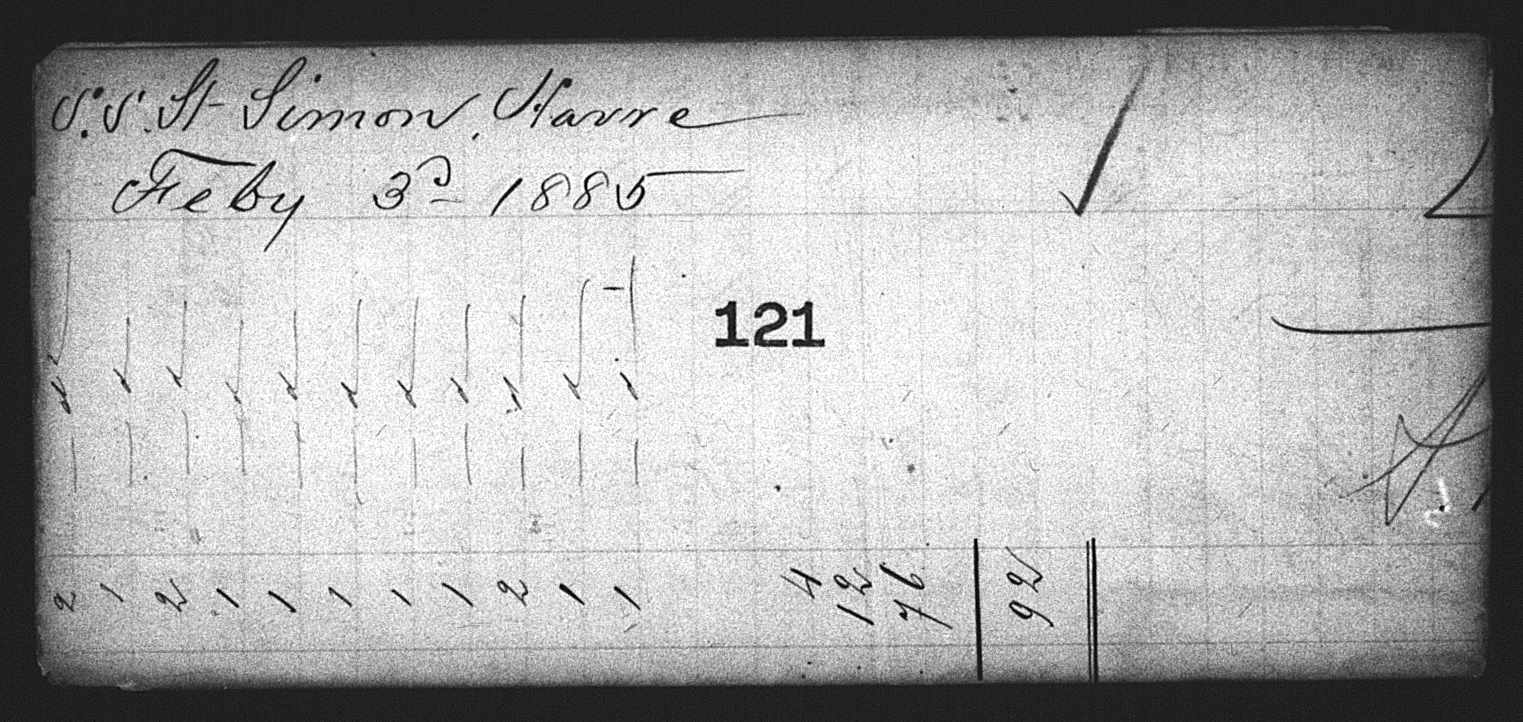 S.S. St Simon, Havre
Feby 3d 1885
121
2 1 2 1 1 1 1 1 2 1 1
4
12
76
92